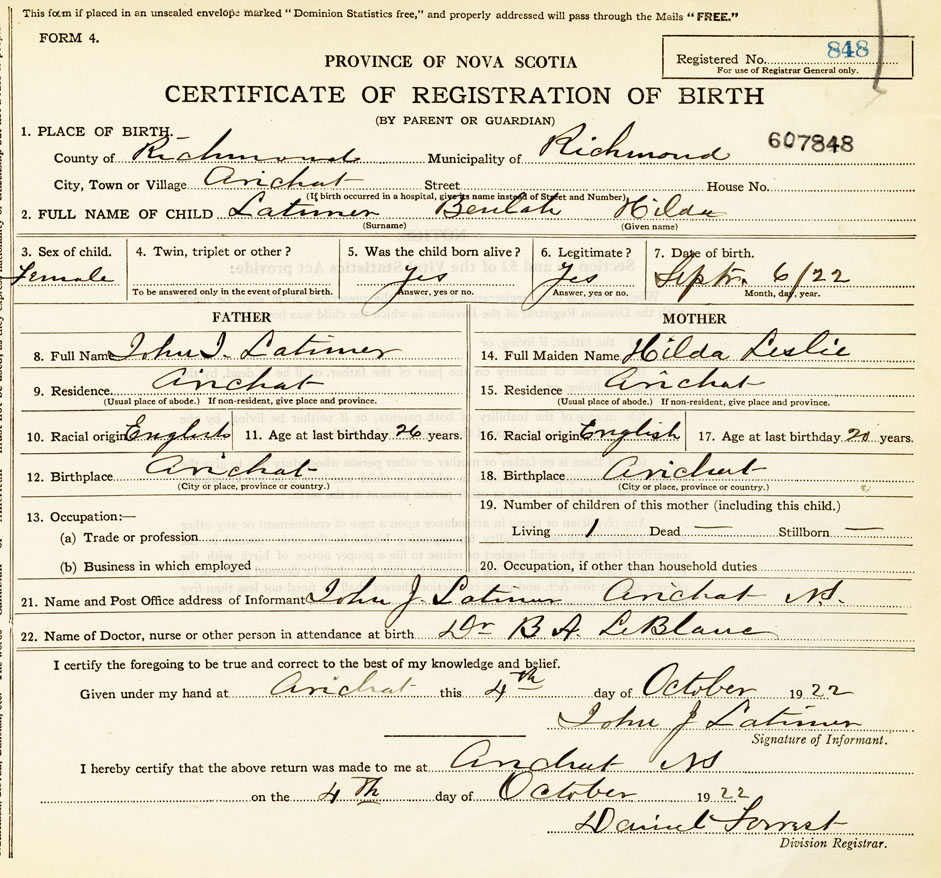 This form if placed in an unsealed envelope marked "Dominion Statistics free," and properly addressed will pass through the Mails "FREE."
FORM 4.
Registered No. 848
For use of Registrar General only.
PROVINCE OF NOVA SCOTIA
CERTIFICATE OF REGISTRATION OF BIRTH
(BY PARENT OR GUARDIAN)
607848
1. PLACE OF BIRTH.
County of Richmond Municipality of Richmond
City, Town or Village Arichat Street House No.
(If birth occurred in a hospital, give its name instead of Street and Number)
2. FULL NAME OF CHILD Latimer Beulah Hilda
(Surname) (Given name)
3. Sex of child. 4. Twin, triplet or other? 5. Was the child born alive? 6. Legitimate? 7. Date of birth.
Female Yes Yes Septr. 6/22
To be answered only in the event of plural birth. Answer, yes or no. Answer, yes or no. Month, day, year.
FATHER MOTHER
8. Full Name John J. Latimer 14. Full Maiden Name Hilda Leslie
9. Residence Arichat 15. Residence Arichat
(Usual place of abode.) If non-resident, give place and province. (Usual place of abode.) If non-resident, give place and province.
10. Racial origin English 11. Age at last birthday 26 years. 16. Racial origin English 17. Age at last birthday years.
12. Birthplace Arichat 18. Birthplace Arichat
(City or place, province or country.) (City or place, province or country.)
13. Occupation:— 19. Number of children of this mother (including this child.)
(a) Trade or profession Living 1 Dead — Stillborn —
(b) Business in which employed 20. Occupation, if other than household duties
21. Name and Post Office address of Informant John J. Latimer Arichat N.S.
22. Name of Doctor, nurse or other person in attendance at birth Dr B A. LeBlanc
I certify the foregoing to be true and correct to the best of my knowledge and belief.
Given under my hand at Arichat this 4th day of October 1922
John J Latimer
Signature of Informant.
I hereby certify that the above return was made to me at Arichat NS
on the 4th day of October 1922
Daniel Forrest
Division Registrar.